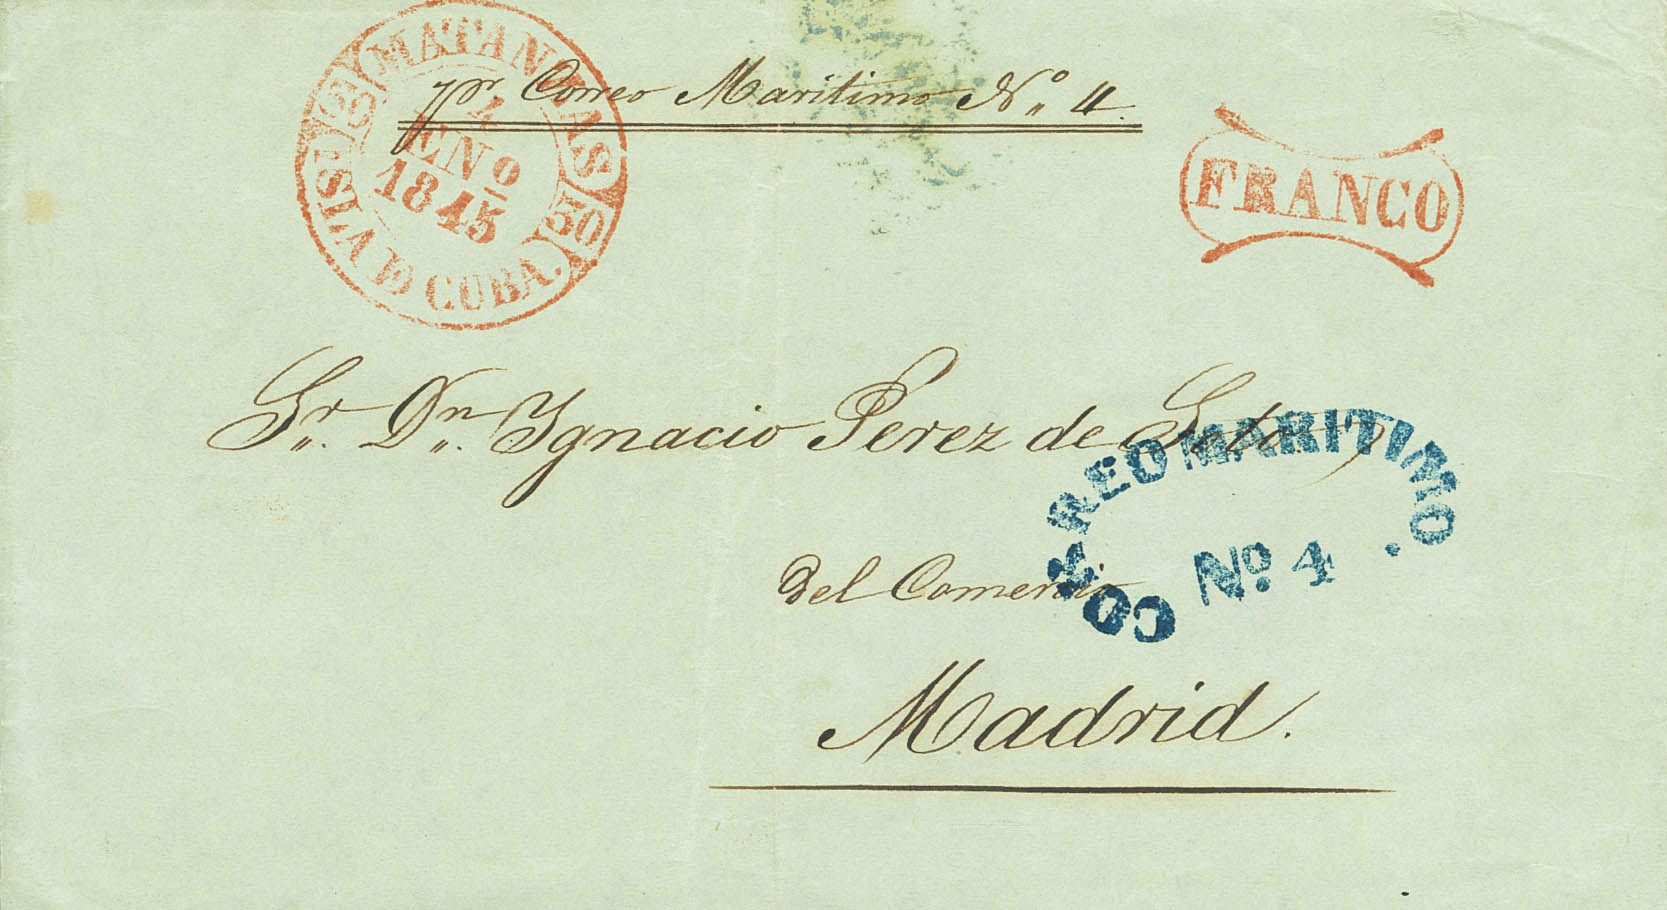 MATANZAS
4
ENº
1845
ISLA DE CUBA.
pr Correo Maritimo Nº 4.
FRANCO
Sr. Dn. Ygnacio Perez de Soto
CORREO MARITIMO.
Nº. 4
del Comercio
Madrid.